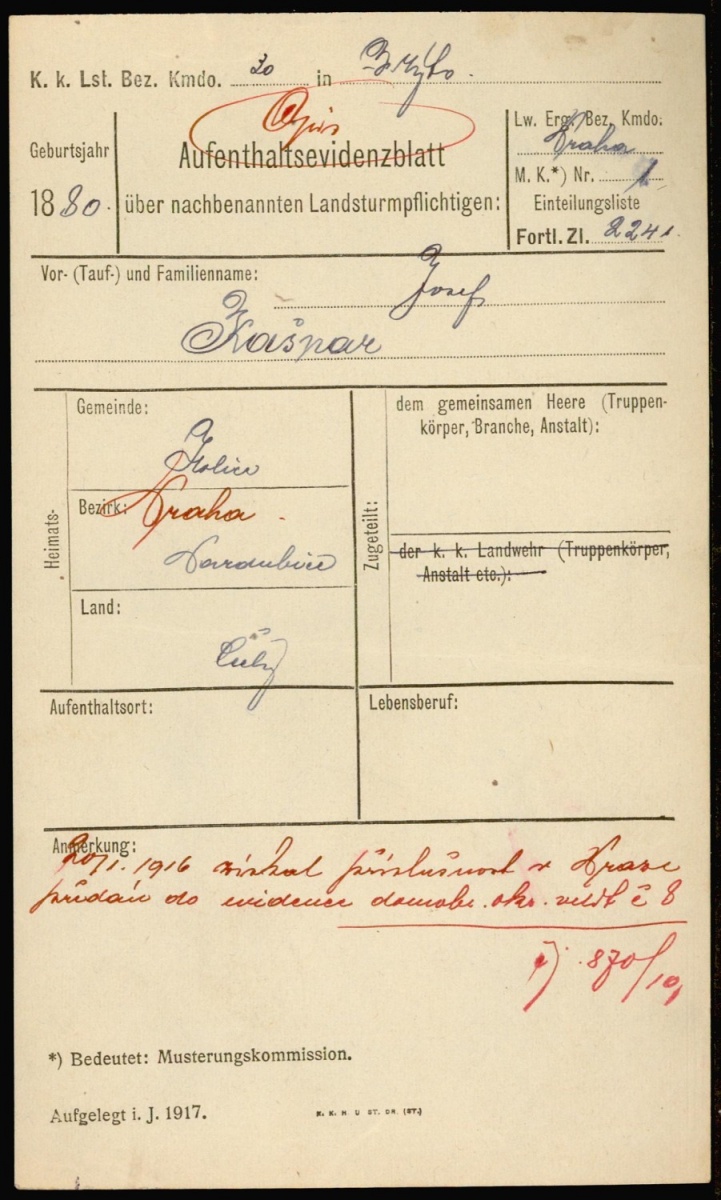 K. k. Lst. Bez. Kmdo. 30 in Mýto.
Opis
Geburtsjahr
1880.
Aufenthaltsevidenzblatt
über nachbenannten Landsturmpflichtigen:
Lw. Erg. Bez. Kmdo:
Praha
M. K.*) Nr. 1
Einteilungsliste
Fortl. Zl. 2241.
Vor- (Tauf-) und Familienname: Josef
Kašpar
Heimats-
Gemeinde:
Holice
Bezirk: Praha.
Pardubice
Land:
Čechy
Zugeteilt:
dem gemeinsamen Heere (Truppen-
körper, Branche, Anstalt):
der k. k. Landwehr (Truppenkörper,
Anstalt etc.):
Aufenthaltsort:
Lebensberuf:
Anmerkung:
20/1. 1916 získal příslušnost v Praze
přidán do evidence domobr. okr. velit č 8
čj. 870/10,
*) Bedeutet: Musterungskommission.
Aufgelegt i. J. 1917.
K. K. H U ST. DR. (ST.)